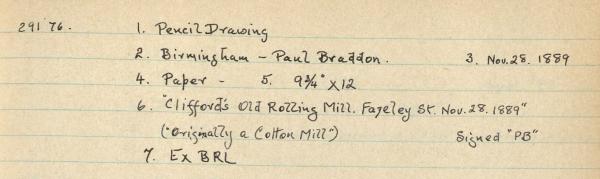 291'76. 1. Pencil Drawing
2. Birmingham - Paul Braddon. 3. Nov. 28. 1889
4. Paper - 5. 9¾" x 12
6. "Clifford's Old Rolling Mill. Fazeley St. Nov. 28. 1889"
("Originally a Cotton Mill") Signed "PB"
7. Ex BRL